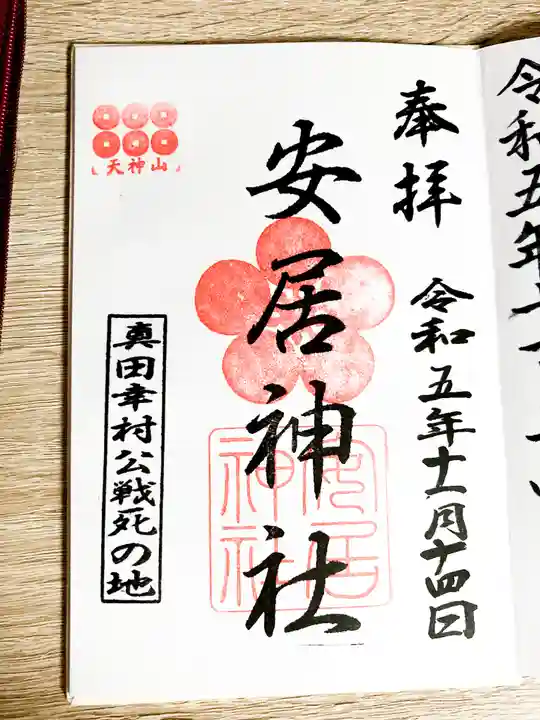 令和五年十
奉拝
令和五年十一月十四日
安居神社
安居
神社
天神山
真田幸村公戦死の地